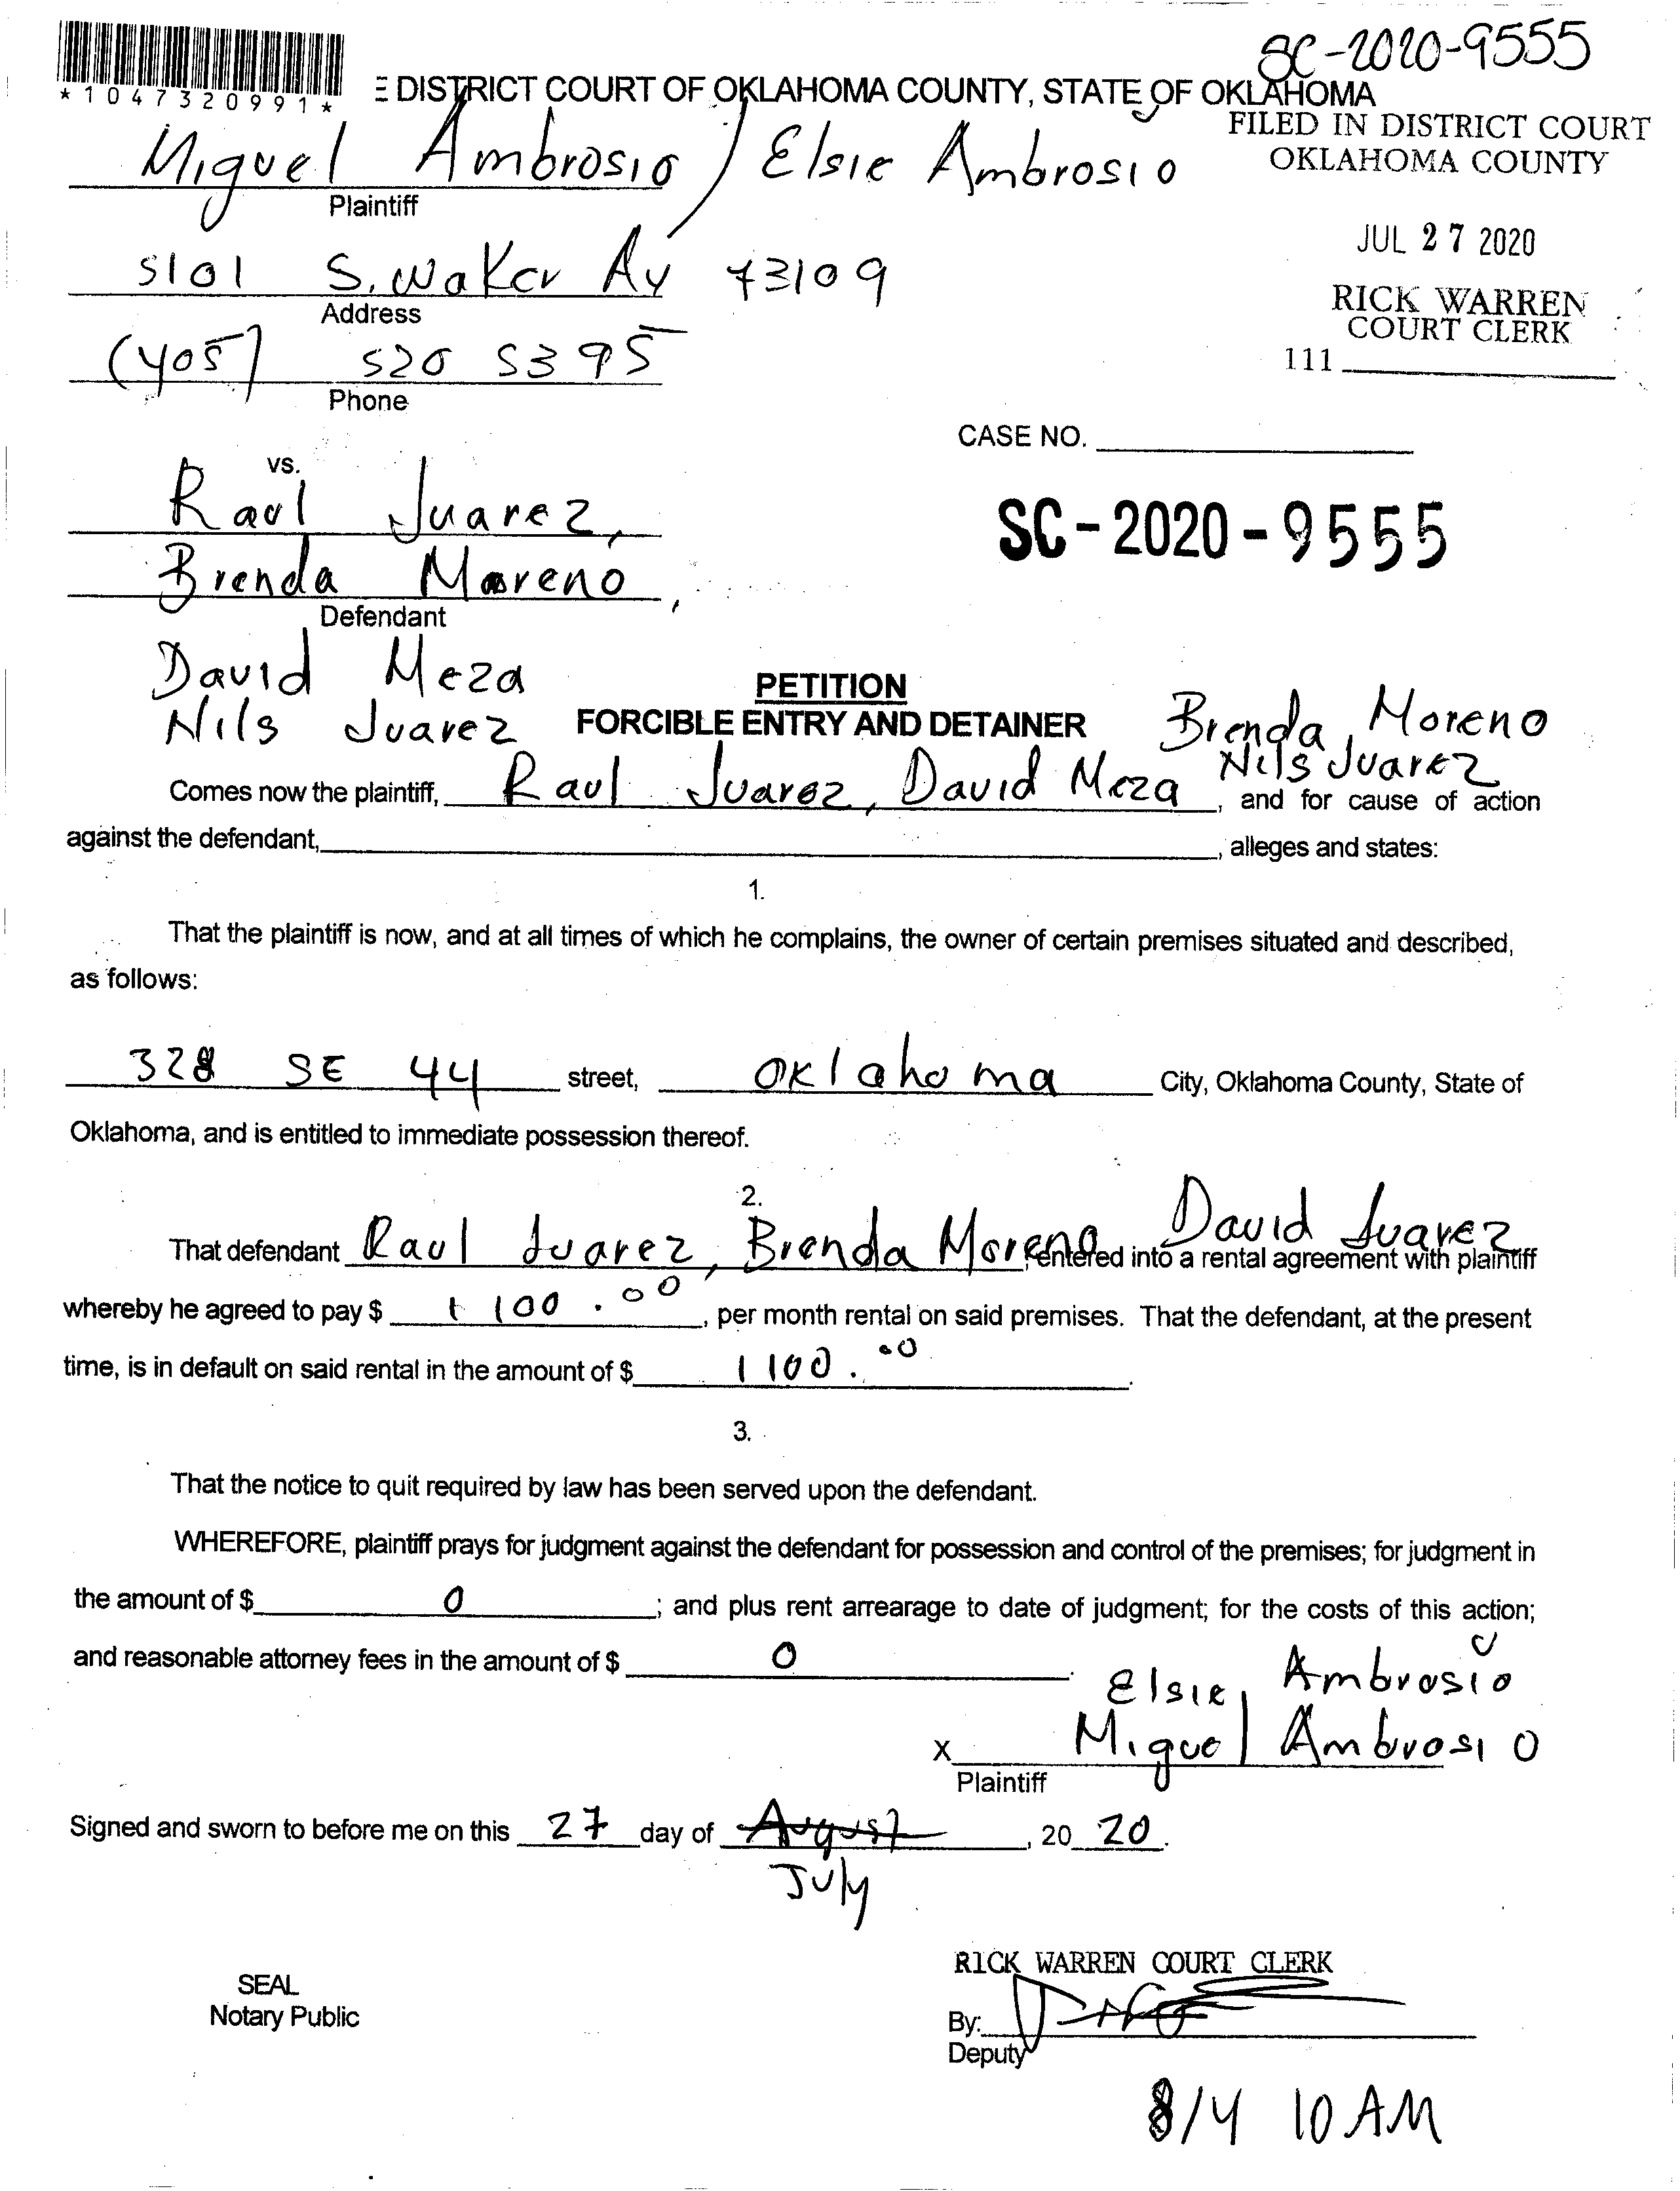 SC-2020-9555
*1047320991*
E DISTRICT COURT OF OKLAHOMA COUNTY, STATE OF OKLAHOMA
FILED IN DISTRICT COURT
OKLAHOMA COUNTY
Miguel Ambrosio / Elsie Ambrosio
Plaintiff
JUL 27 2020
5101 S. Walker Av 73109
Address
RICK WARREN
COURT CLERK
(405) 520 5395
111
Phone
CASE NO.
vs.
Raul Juarez,
SC-2020-9555
Brenda Moreno,
Defendant
David Meza
PETITION
Nils Juarez
FORCIBLE ENTRY AND DETAINER
Brenda Moreno
Nils Juarez
Comes now the plaintiff, Raul Juarez, David Meza, and for cause of action
against the defendant, , alleges and states:
1.
That the plaintiff is now, and at all times of which he complains, the owner of certain premises situated and described,
as follows:
328 SE 44 street, Oklahoma City, Oklahoma County, State of
Oklahoma, and is entitled to immediate possession thereof.
2.
David Juarez
That defendant Raul Juarez, Brenda Moreno, entered into a rental agreement with plaintiff
whereby he agreed to pay $ 1100.00, per month rental on said premises. That the defendant, at the present
time, is in default on said rental in the amount of $ 1100.00.
3.
That the notice to quit required by law has been served upon the defendant.
WHEREFORE, plaintiff prays for judgment against the defendant for possession and control of the premises; for judgment in
the amount of $ 0; and plus rent arrearage to date of judgment; for the costs of this action;
and reasonable attorney fees in the amount of $ 0.
Elsie Ambrosio
X Miguel Ambrosio
Plaintiff
Signed and sworn to before me on this 27 day of August, 20 20.
July
RICK WARREN COURT CLERK
SEAL
Notary Public
By:
Deputy
8/4 10 AM